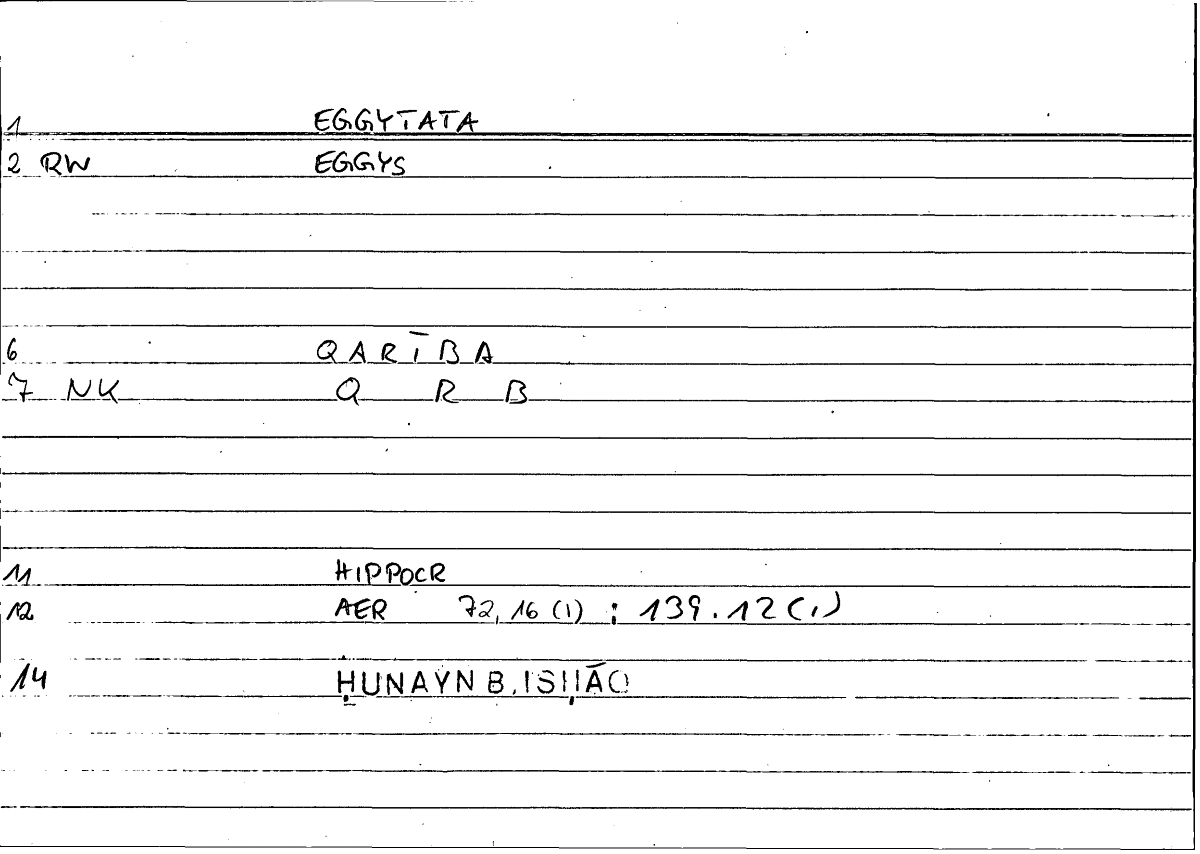 1 EGGYTATA
2 RW EGGYS
6 QARĪBA
7 NK Q R B
11 HIPPOCR
12 AER 72,16 (1) ; 139.12 (1)
14 ḤUNAYN B. ISḤĀQ